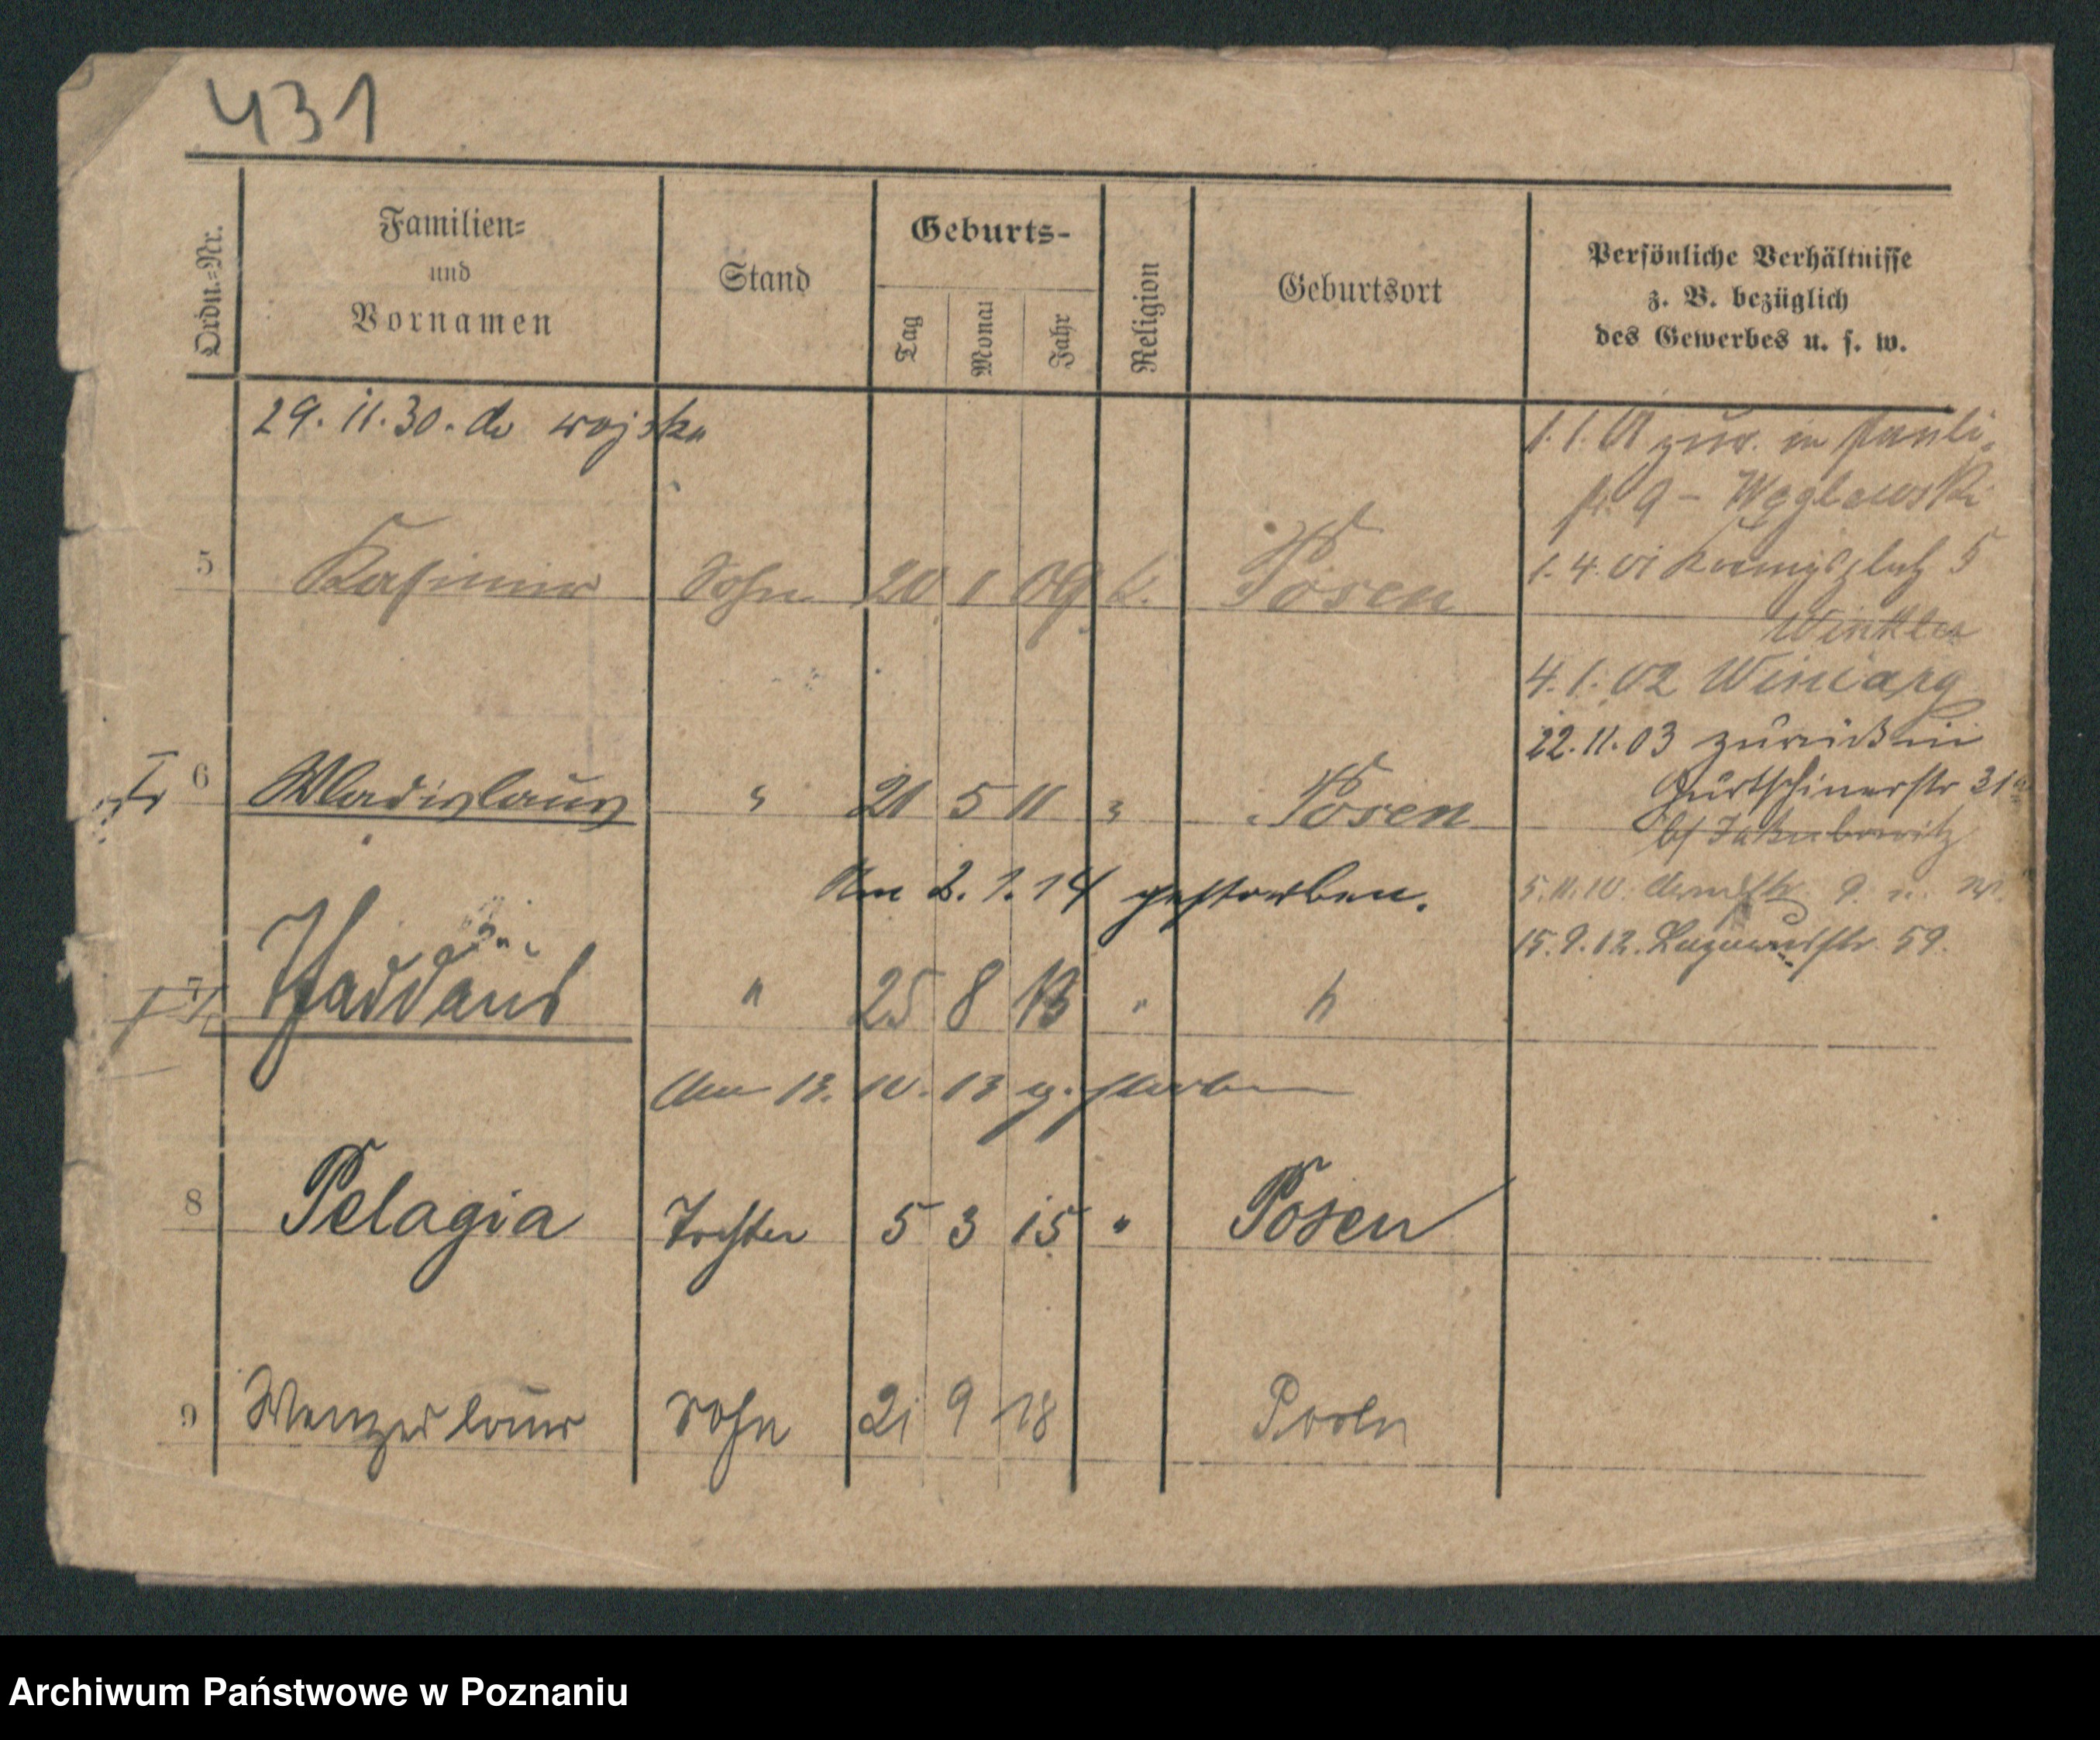 431
Ordn.=Nr.
Familien=
und
Vornamen
Stand
Geburts-
Tag
Monat
Jahr
Religion
Geburtsort
Persönliche Verhältnisse
z. B. bezüglich
des Gewerbes u. s. w.
29.11.30. do wojska
1.1.01 zur. in Pauli-
9 - Węglewski
5 Kasimir Sohn 20 1 09 k. Posen
1.4.01 Koenigsplatz 5
Winkler
4.1.02 Winiary
22.11.03 zurück in
Gurtschinerstr 31a
b/ Jakubowitz
6 Wladislaus " 21 5 11 " Posen
Am 2.1.14 gestorben.
5.11.10. 9.
15.9.12. Lazarusstr. 59.
7 Thaddäus " 25 8 13 " "
Am 13.10.13 gestorben
8 Pelagia Tochter 5 3 15 " Posen
9 Wenzeslaus Sohn 21 9 18 Posen
Archiwum Państwowe w Poznaniu